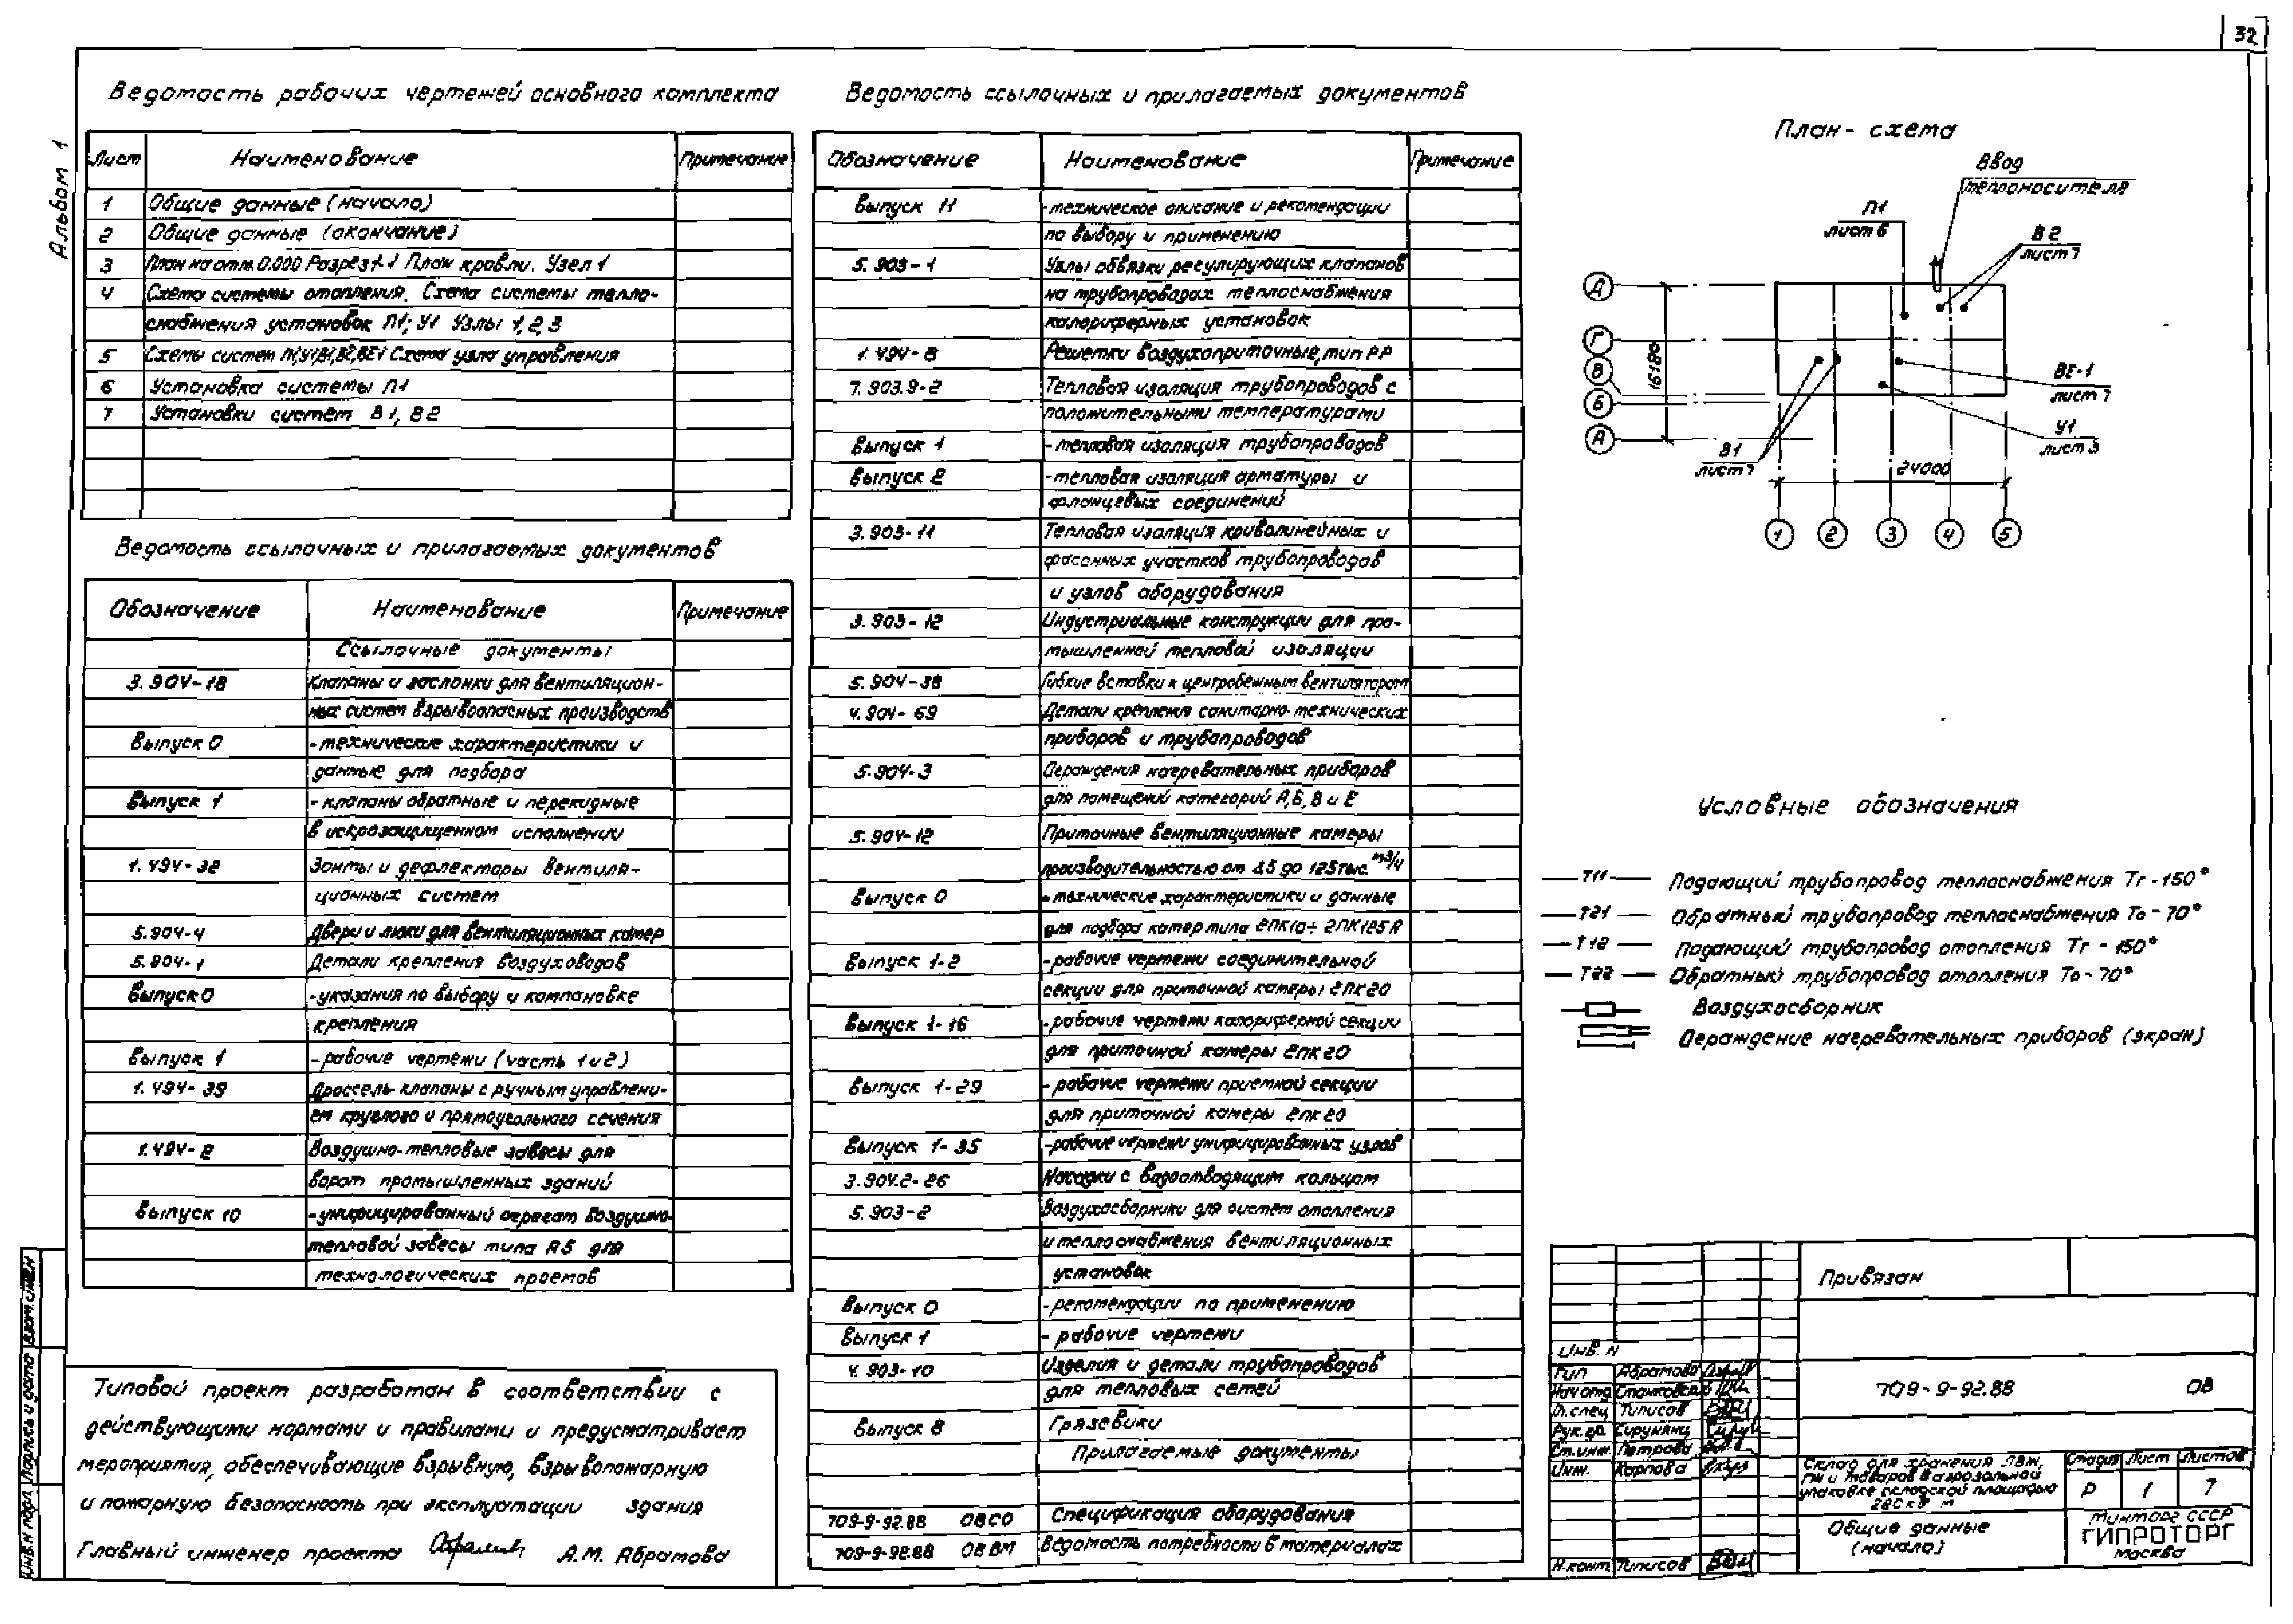 32
Альбом 1
Ведомость рабочих чертежей основного комплекта
Лист Наименование Примечание
1 Общие данные (начало)
2 Общие данные (окончание)
3 План на отм. 0.000 Разрез 1-1 План кровли. Узел 1
4 Схема системы отопления. Схема системы тепло-
снабжения установок П1, У1 Узлы 1, 2, 3
5 Схемы систем П1, У1, В1, В2, ВЕ1 Схема узла управления
6 Установка системы П1
7 Установки систем В1, В2
Ведомость ссылочных и прилагаемых документов
Обозначение Наименование Примечание
Ссылочные документы
3.904-18 Клапаны и заслонки для вентиляцион-
ных систем взрывоопасных производств
Выпуск 0 - технические характеристики и
данные для подбора
Выпуск 1 - клапаны обратные и перекидные
в искрозащищенном исполнении
1.494-32 Зонты и дефлекторы вентиля-
ционных систем
5.904-4 Двери и люки для вентиляционных камер
5.904-1 Детали крепления воздуховодов
Выпуск 0 - указания по выбору и компановке
крепления
Выпуск 1 - рабочие чертежи (часть 1 и 2)
1.494-39 Дроссель-клапаны с ручным управлени-
ем круглого и прямоугольного сечения
1.494-2 Воздушно-тепловые завесы для
ворот промышленных зданий
Выпуск 10 - унифицированный агрегат воздушно-
тепловой завесы типа А5 для
технологических проемов
Типовой проект разработан в соответствии с
действующими нормами и правилами и предусматривает
мероприятия, обеспечивающие взрывную, взрывопожарную
и пожарную безопасность при эксплуатации здания
Главный инженер проекта А.М. Абрамова
Ведомость ссылочных и прилагаемых документов
Обозначение Наименование Примечание
Выпуск 11 - техническое описание и рекомендации
по выбору и применению
5.903-1 Узлы обвязки регулирующих клапанов
на трубопроводах теплоснабжения
калориферных установок
1.494-8 Решетки воздухоприточные, тип РР
7.903.9-2 Тепловая изоляция трубопроводов с
положительными температурами
Выпуск 1 - тепловая изоляция трубопроводов
Выпуск 2 - тепловая изоляция арматуры и
фланцевых соединений
3.903-11 Тепловая изоляция криволинейных и
фасонных участков трубопроводов
и узлов оборудования
3.903-12 Индустриальные конструкции для про-
мышленной тепловой изоляции
5.904-38 Гибкие вставки к центробежным вентиляторам
4.904-69 Детали крепления санитарно-технических
приборов и трубопроводов
5.904-3 Ограждения нагревательных приборов
для помещений категорий А, Б, В и Е
5.904-12 Приточные вентиляционные камеры
производительностью от 3,5 до 125 тыс. м3/ч
Выпуск 0 - технические характеристики и данные
для подбора камер типа 2ПК10 ÷ 2ПК125А
Выпуск 1-2 - рабочие чертежи соединительной
секции для приточной камеры 2ПК20
Выпуск 1-16 - рабочие чертежи калориферной секции
для приточной камеры 2ПК20
Выпуск 1-29 - рабочие чертежи приемной секции
для приточной камеры 2ПК20
Выпуск 1-35 - рабочие чертежи унифицированных узлов
3.904.2-26 Насадки с водоотводящим кольцом
5.903-2 Воздухосборники для систем отопления
и теплоснабжения вентиляционных
установок
Выпуск 0 - рекомендации по применению
Выпуск 1 - рабочие чертежи
4.903-10 Изделия и детали трубопроводов
для тепловых сетей
Выпуск 8 Грязевики
Прилагаемые документы
709-9-92.88 ОВСО Спецификация оборудования
709-9-92.88 ОВВМ Ведомость потребности в материалах
План-схема
Ввод
теплоносителя
П1
лист 6
В2
лист 7
Д
Г
В
Б
А
16180
ВЕ-1
лист 7
У1
лист 3
В1
лист 7
24000
1 2 3 4 5
Условные обозначения
Т11 Подающий трубопровод теплоснабжения Тг - 150°
Т21 Обратный трубопровод теплоснабжения То - 70°
Т12 Подающий трубопровод отопления Тг - 150°
Т22 Обратный трубопровод отопления То - 70°
Воздухосборник
Ограждение нагревательных приборов (экран)
Привязан
Инв. N
Гип Абрамова
Нач отд Станковская
Гл. спец Типисов
Рук. гр. Сирунянц
Ст. инж. Петрова
Инж. Карпова
Н. конт Типисов
709-9-92.88 ОВ
Склад для хранения ЛВЖ,
ГЖ и товаров в аэрозольной
упаковке складской площадью
280 кв м
Стадия Лист Листов
Р 1 7
Общие данные
(начало)
Минторг СССР
ГИПРОТОРГ
Москва
Инв. N подл. Подпись и дата Взам. инв. N